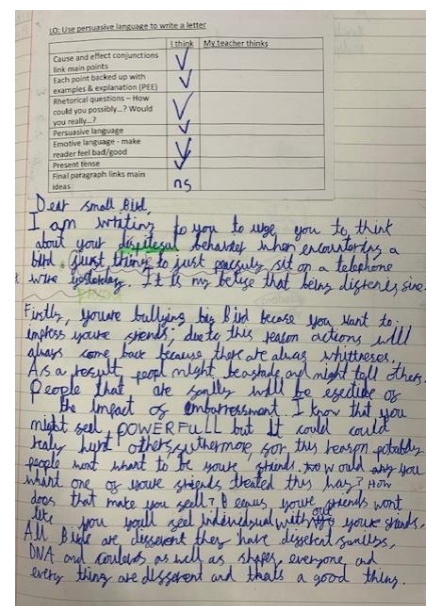 LO: Use persuasive language to write a letter
I think My teacher thinks
Cause and effect conjunctions
link main points
Each point backed up with
examples & explanation (PEE)
Rhetorical questions – How
could you possibly...? Would
you really...?
Persuasive language
Emotive language - make
reader feel bad/good
Present tense
Final paragraph links main
ideas
ns
Dear small Bird,
I am writing to you to urge you to think
about your behavior when encountering a
bird. to just sit on a telephone
wire yesterday. It is my that being
Firstly, youre bullying big Bird becase you want to
impress youre friends; due to this reason actions will
always come back because there are always whittnesses.
As a result, peopl might be and might tell others.
People that are will be of
the impact of embarressment. I know that you
might feel POWERFULL but it could could
realy hurt others, futhermore, for this reason
people wont whant to be youre friends. would you
whant one of youre friends treated this way? How
does that make you feel? Becaus youre friends wont
like you youll feel individual without youre friends.
All Birds are different they have different familys,
DNA and coulers as well as shapes, everyone and
every thing are different and thats a good thing.